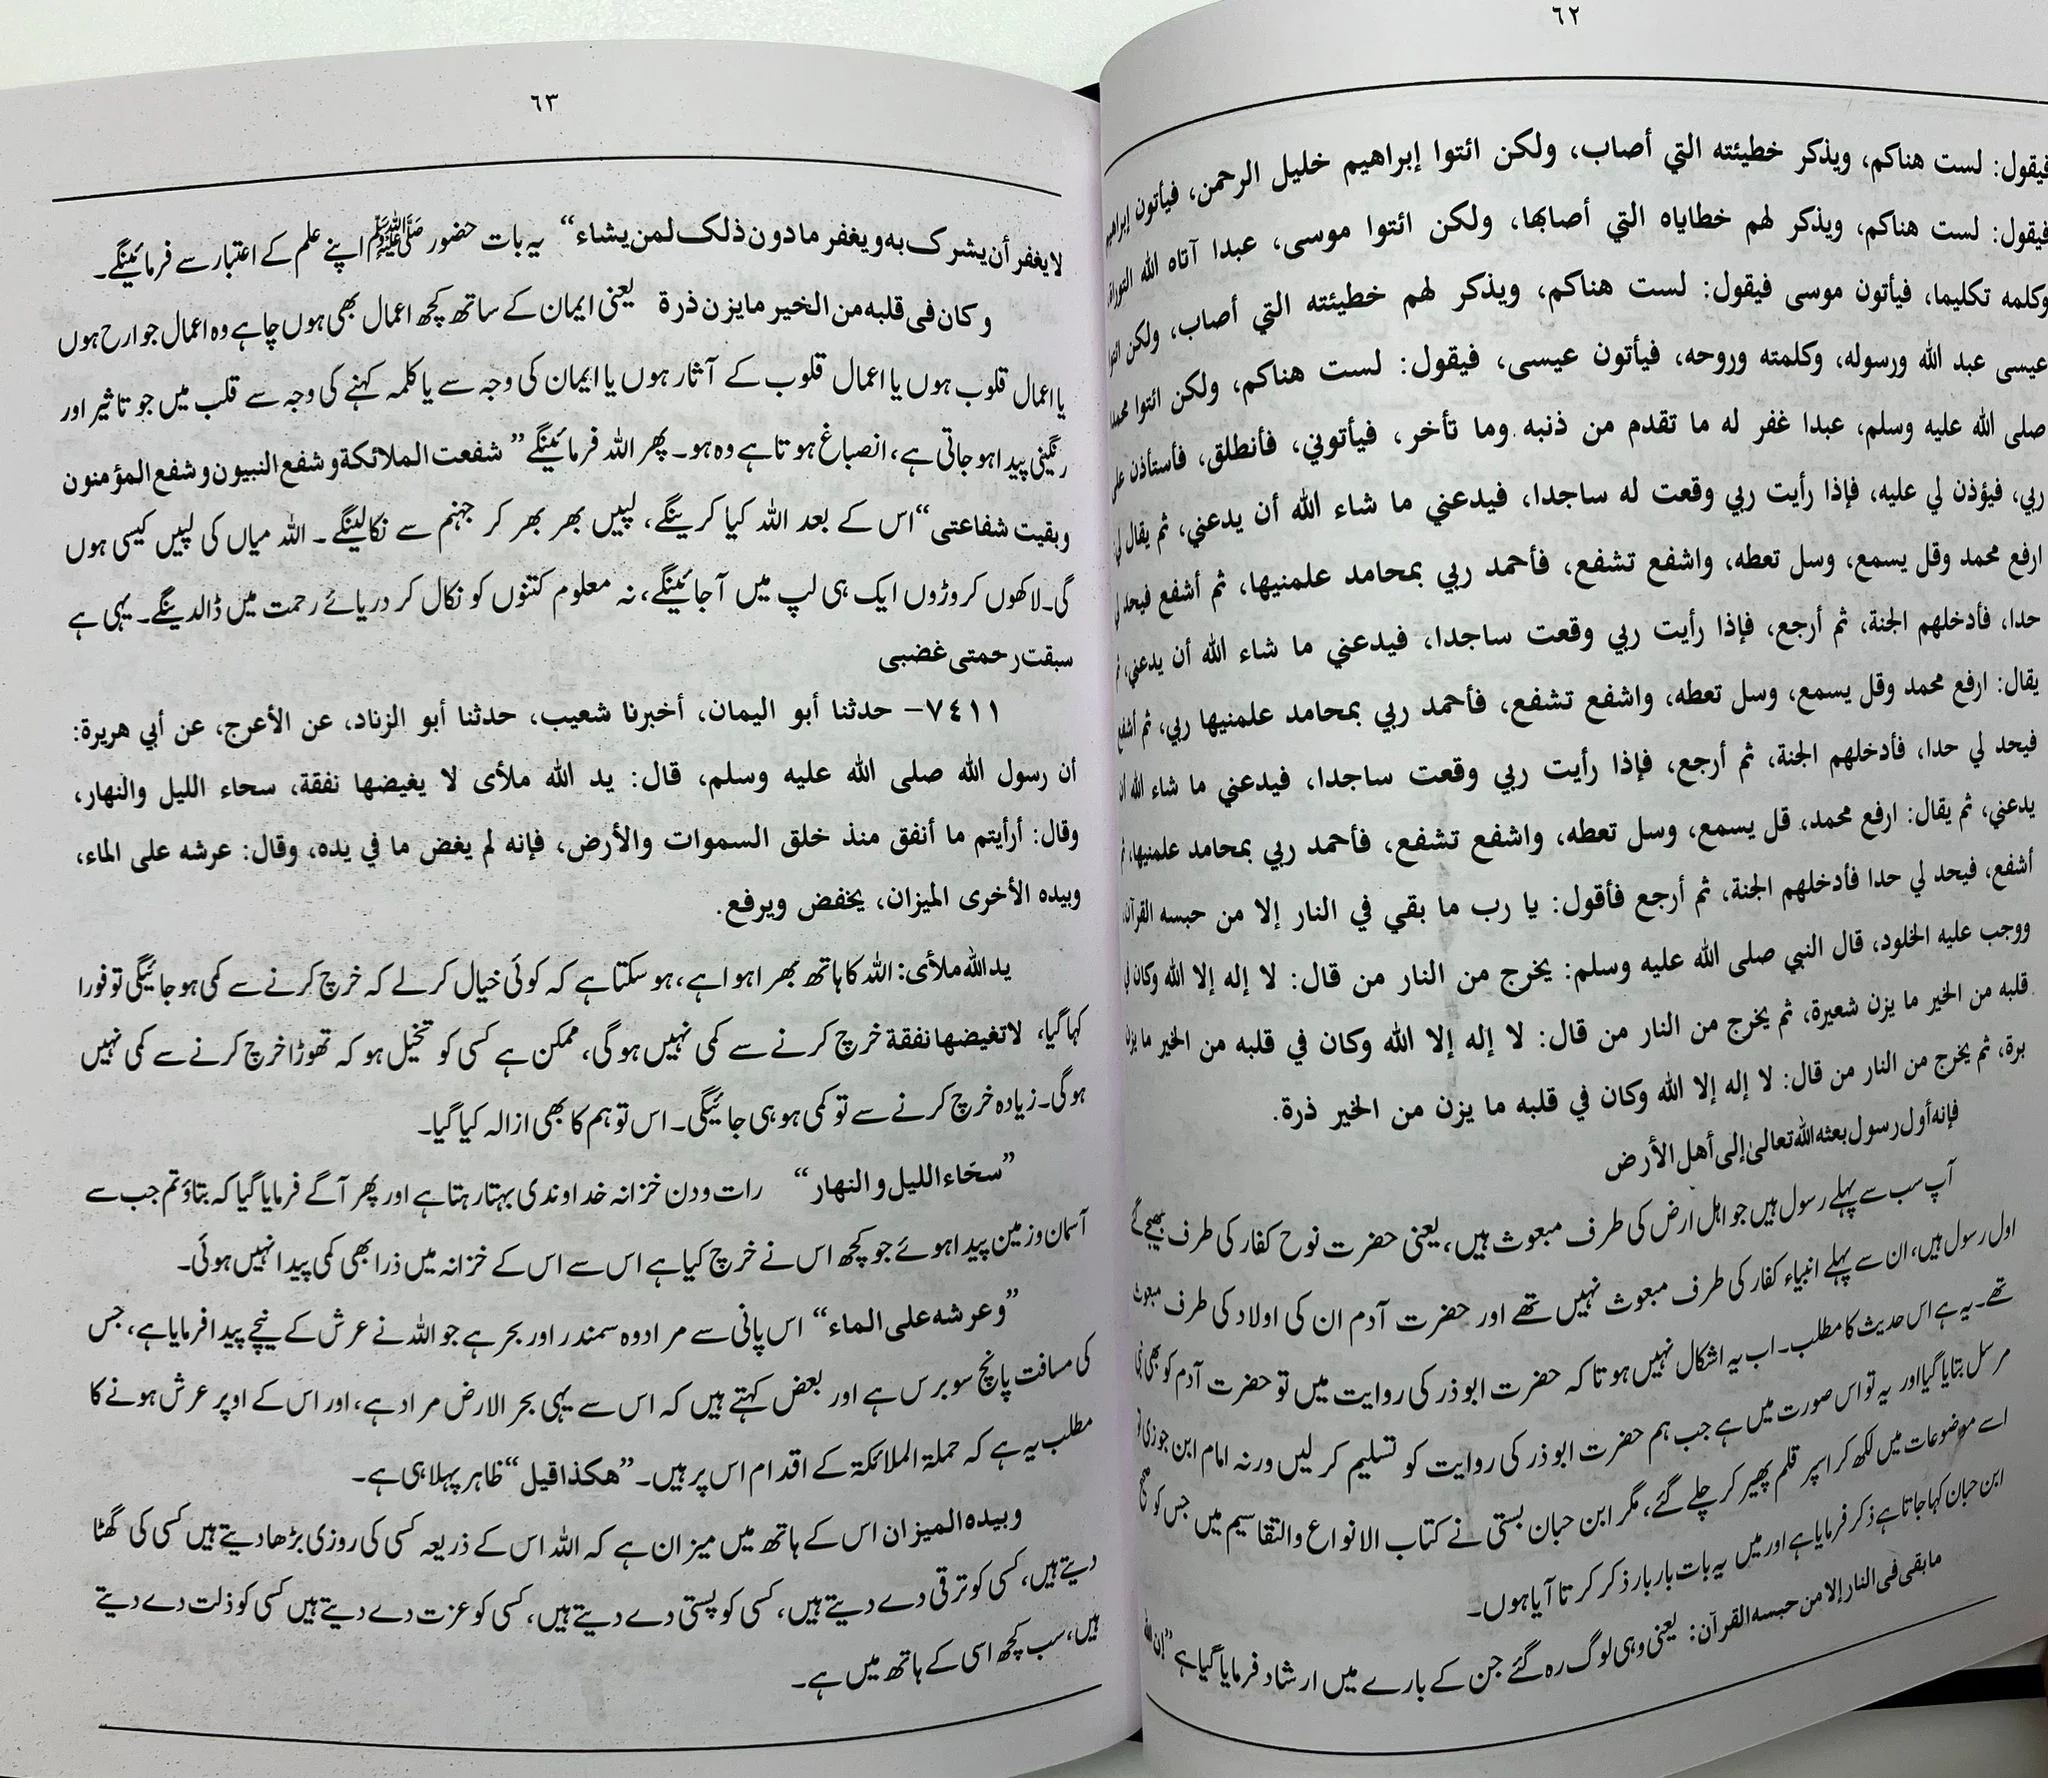 ٦٢
فيقول: لست هناكم، ويذكر خطيئته التي أصاب، ولكن ائتوا إبراهيم خليل الرحمن، فيأتون إبراهيم
فيقول: لست هناكم، ويذكر لهم خطاياه التي أصابها، ولكن ائتوا موسى، عبدا آتاه الله التوراة،
وكلمه تكليما، فيأتون موسى فيقول: لست هناكم، ويذكر لهم خطيئته التي أصاب، ولكن ائتوا
عيسى عبد الله ورسوله، وكلمته وروحه، فيأتون عيسى، فيقول: لست هناكم، ولكن ائتوا محمدا
صلى الله عليه وسلم، عبدا غفر له ما تقدم من ذنبه وما تأخر، فيأتوني، فأنطلق، فأستأذن على
ربي، فيؤذن لي عليه، فإذا رأيت ربي وقعت له ساجدا، فيدعني ما شاء الله أن يدعني، ثم يقال لي
ارفع محمد وقل يسمع، وسل تعطه، واشفع تشفع، فأحمد ربي بمحامد علمنيها، ثم أشفع فيحد لي
حدا، فأدخلهم الجنة، ثم أرجع، فإذا رأيت ربي وقعت ساجدا، فيدعني ما شاء الله أن يدعني، ثم
يقال: ارفع محمد وقل يسمع، وسل تعطه، واشفع تشفع، فأحمد ربي بمحامد علمنيها ربي، ثم أشفع
فيحد لي حدا، فأدخلهم الجنة، ثم أرجع، فإذا رأيت ربي وقعت ساجدا، فيدعني ما شاء الله أن
يدعني، ثم يقال: ارفع محمد، قل يسمع، وسل تعطه، واشفع تشفع، فأحمد ربي بمحامد علمنيها، ثم
أشفع، فيحد لي حدا فأدخلهم الجنة، ثم أرجع فأقول: يا رب ما بقي في النار إلا من حبسه القرآن،
ووجب عليه الخلود، قال النبي صلى الله عليه وسلم: يخرج من النار من قال: لا إله إلا الله وكان في
قلبه من الخير ما يزن شعيرة، ثم يخرج من النار من قال: لا إله إلا الله وكان في قلبه من الخير ما يزن
برة، ثم يخرج من النار من قال: لا إله إلا الله وكان في قلبه ما يزن من الخير ذرة.
فإنه أول رسول بعثه الله تعالیٰ إلى أهل الأرض
آپ سب سے پہلے رسول ہیں جو اہل ارض کی طرف مبعوث ہیں، یعنی حضرت نوح کفار کی طرف بھیجے گئے
اول رسول ہیں، ان سے پہلے انبیاء کفار کی طرف مبعوث نہیں تھے اور حضرت آدم ان کی اولاد کی طرف مبعوث
تھے۔ یہ ہے اس حدیث کا مطلب۔ اب یہ اشکال نہیں ہوتا کہ حضرت ابوذر کی روایت میں تو حضرت آدم کو بھی نبی
مرسل بتایا گیا اور یہ تو اس صورت میں ہے جب ہم حضرت ابوذر کی روایت کو تسلیم کر لیں ورنہ امام ابن جوزی تو
اسے موضوعات میں لکھ کر اسپر قلم پھیر کر چلے گئے، مگر ابن حبان بستی نے کتاب الانواع والتقاسیم میں جس کو صحیح
ابن حبان کہا جاتا ہے ذکر فرمایا ہے اور میں یہ بات بار بار ذکر کرتا آیا ہوں۔
مابقى فى النار إلا من حبسه القرآن: یعنی وہی لوگ رہ گئے جن کے بارے میں ارشاد فرمایا گیا ہے ”إن الله
٦٣
لا يغفر أن يشرك به ويغفر مادون ذلك لمن يشاء“ یہ بات حضور ﷺ اپنے علم کے اعتبار سے فرمائینگے۔
وكان فى قلبه من الخير مايزن ذرة یعنی ایمان کے ساتھ کچھ اعمال بھی ہوں چاہے وہ اعمال جوارح ہوں
یا اعمال قلوب ہوں یا اعمال قلوب کے آثار ہوں یا ایمان کی وجہ سے یا کلمہ کہنے کی وجہ سے قلب میں جو تاثیر اور
رنگینی پیدا ہو جاتی ہے، انصباغ ہوتا ہے وہ ہو۔ پھر اللہ فرمائینگے ”شفعت الملائكة وشفع النبيون وشفع المؤمنون
وبقيت شفاعتى“ اس کے بعد اللہ کیا کرینگے، لپیں بھر بھر کر جہنم سے نکالینگے۔ اللہ میاں کی لپیں کیسی ہوں
گی۔ لاکھوں کروڑوں ایک ہی لپ میں آجائینگے، نہ معلوم کتنوں کو نکال کر دریائے رحمت میں ڈالدینگے۔ یہی ہے
سبقت رحمتى غضبى
٧٤١١- حدثنا أبو اليمان، أخبرنا شعيب، حدثنا أبو الزناد، عن الأعرج، عن أبي هريرة:
أن رسول الله صلى الله عليه وسلم، قال: يد الله ملأى لا يغيضها نفقة، سحاء الليل والنهار،
وقال: أرأيتم ما أنفق منذ خلق السموات والأرض، فإنه لم يغض ما في يده، وقال: عرشه على الماء،
وبيده الأخرى الميزان، يخفض ويرفع.
يد الله ملأى: اللہ کا ہاتھ بھرا ہوا ہے، ہو سکتا ہے کہ کوئی خیال کرلے کہ خرچ کرنے سے کمی ہو جائیگی تو فورا
کہا گیا، لا تغيضها نفقة خرچ کرنے سے کمی نہیں ہوگی، ممکن ہے کسی کو تخیل ہو کہ تھوڑا خرچ کرنے سے کمی نہیں
ہوگی۔ زیادہ خرچ کرنے سے تو کمی ہو ہی جائیگی۔ اس توہم کا بھی ازالہ کیا گیا۔
”سخاء الليل والنهار“ رات ودن خزانہ خداوندی بہتا رہتا ہے اور پھر آگے فرمایا گیا کہ بتاؤ تم جب سے
آسمان وزمین پیدا ہوئے جو کچھ اس نے خرچ کیا ہے اس سے اس کے خزانہ میں ذرا بھی کمی پیدا نہیں ہوئی۔
”وعرشه على الماء“ اس پانی سے مراد وہ سمندر اور بحر ہے جو اللہ نے عرش کے نیچے پیدا فرمایا ہے، جس
کی مسافت پانچ سو برس ہے اور بعض کہتے ہیں کہ اس سے یہی بحر الارض مراد ہے، اور اس کے اوپر عرش ہونے کا
مطلب یہ ہے کہ حملة الملائكة کے اقدام اس پر ہیں۔ ”هكذا قيل“ ظاہر پہلا ہی ہے۔
وبيده الميزان اس کے ہاتھ میں میزان ہے کہ اللہ اس کے ذریعہ کسی کی روزی بڑھا دیتے ہیں کسی کی گھٹا
دیتے ہیں، کسی کو ترقی دے دیتے ہیں، کسی کو پستی دے دیتے ہیں، کسی کو عزت دے دیتے ہیں کسی کو ذلت دے دیتے
ہیں، سب کچھ اسی کے ہاتھ میں ہے۔